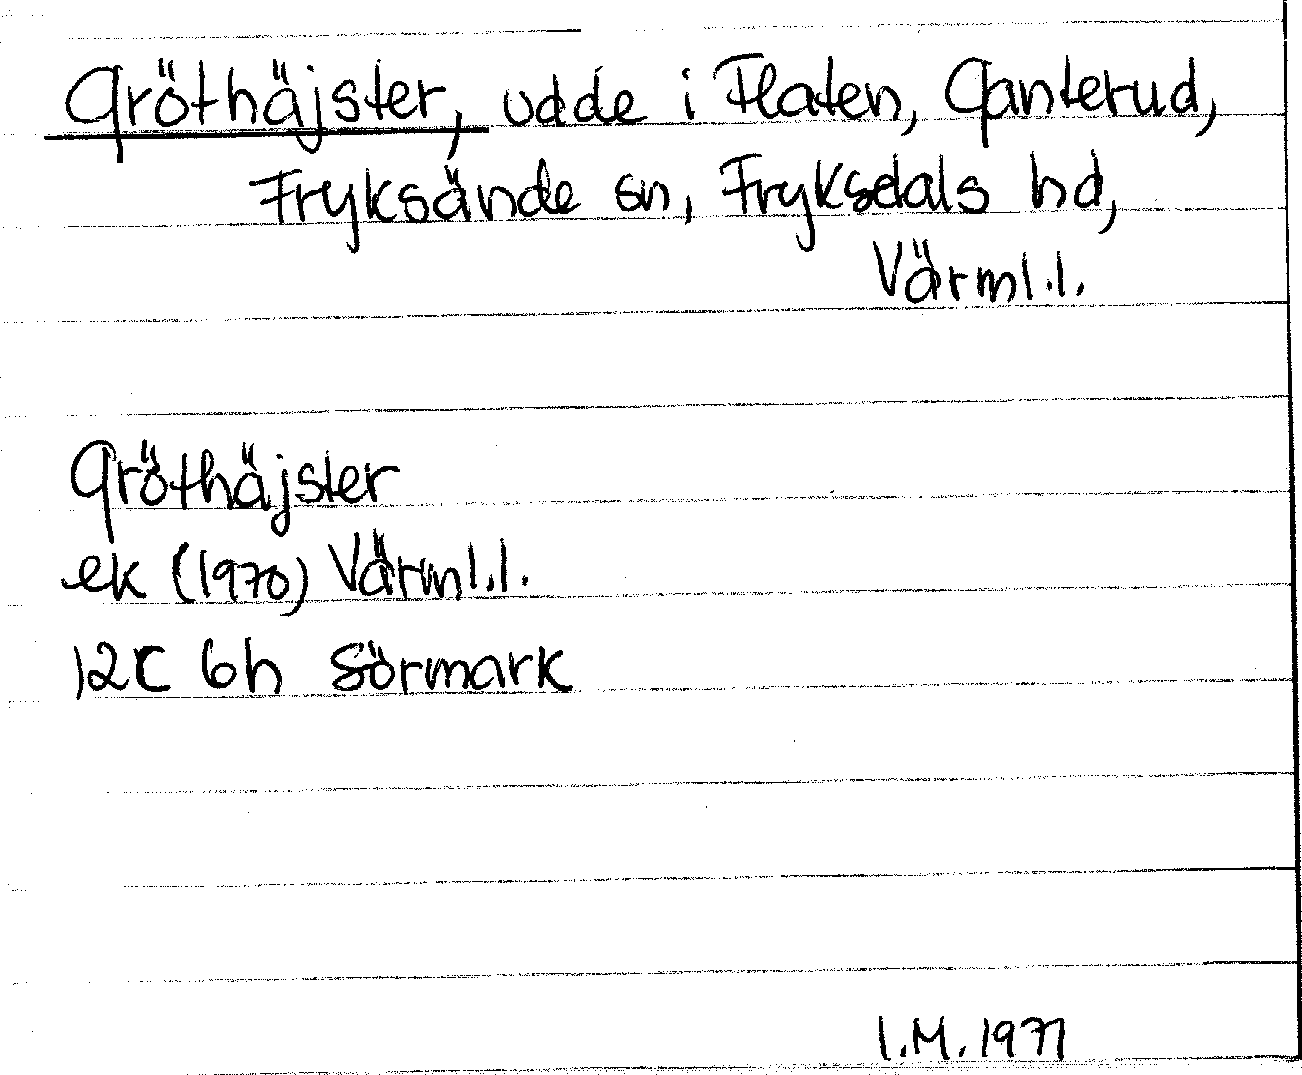 Gröthäjster, udde i Flaten, Ganterud,
Fryksände sn, Fryksdals hd,
Värml.l.
Gröthäjster
ek (1970) Värml.l.
12C 6h Sörmark
I.M. 1977